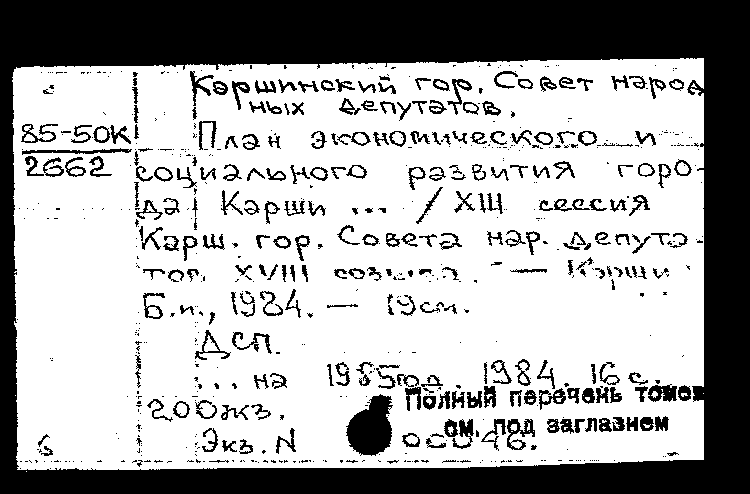 с
Каршинский гор. Совет народ
ных депутатов.
85-50К
2662
План экономического и
социального развития горо-
да Карши ... / XIII сессия
Карш. гор. Совета нар. депута-
тов XVIII созыва. — Карши
Б.и., 1984. — 19 см.
ДСП.
... на 1985 год. 1984. 16 с.
200 экз.
Полный перечень томов
см. под заглавием
6
Экз. N 000046.